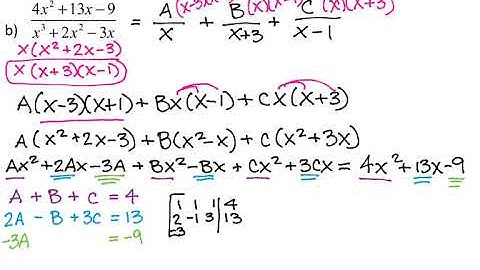 b) (4x² + 13x − 9)/(x³ + 2x² − 3x) = A/x + B/(x+3) + C/(x−1)
x(x²+2x−3)
x(x+3)(x−1)
A(x−3)(x+1) + Bx(x−1) + Cx(x+3)
A(x²+2x−3) + B(x²−x) + C(x²+3x)
Ax²+2Ax−3A + Bx²−Bx + Cx²+3Cx = 4x²+13x−9
A + B + C = 4
2A − B + 3C = 13
−3A = −9
1 1 1 | 4
2 −1 3 | 13
−3